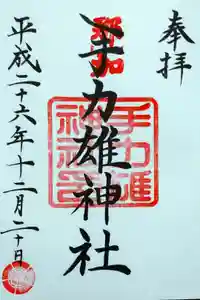 奉拝
那加
手力雄神社
手力雄神社印
平成二十六年十二月二十日